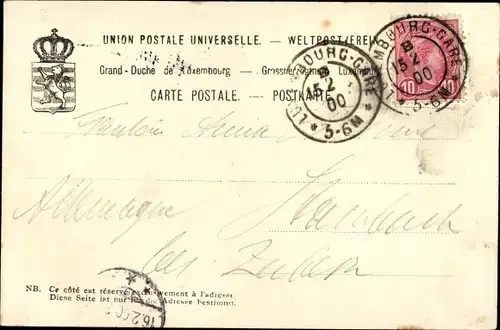 UNION POSTALE UNIVERSELLE. — WELTPOSTVEREIN
Grand-Duche de Luxembourg — Grossherzogthum Luxemburg
CARTE POSTALE. — POSTKARTE
LUXEMBOURG-GARE
B
15 2
00
5-6M
LUXEMBOURG-GARE
B
15 2
00
5-6M
10
10
Fräulein Anna
Allemagne
bei
NB. Ce côté est réservé exclusivement à l'adresse
Diese Seite ist nur für die Adresse bestimmt.
16.2.00